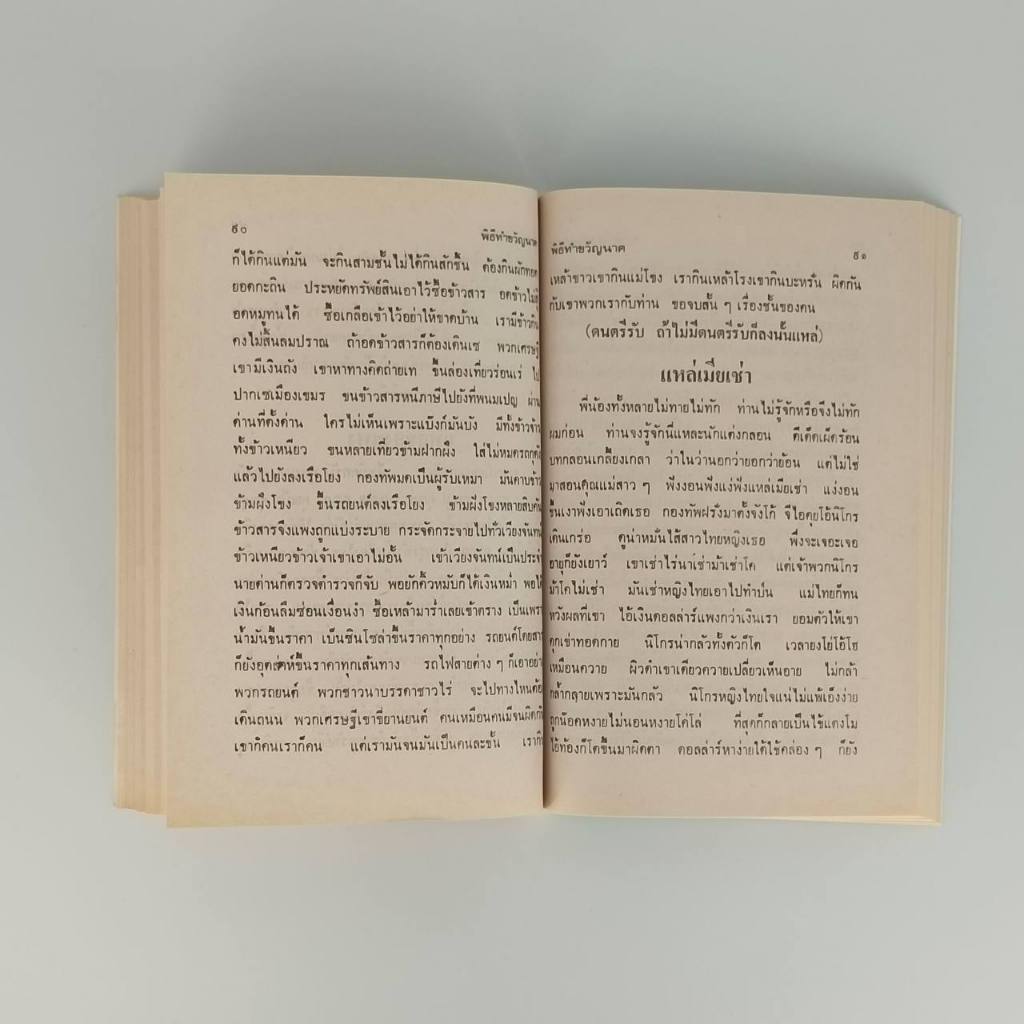 ๕๐ พิธีทำขวัญนาค
ก็ได้กินแต่มัน จะกินสามชั้นไม่ได้กินสักชิ้น ต้องกินผักทอด
ยอดกะถิน ประหยัดทรัพย์สินเอาไว้ซื้อข้าวสาร อดข้าวไม่
อดหมูทนได้ ซื้อเกลือเข้าไว้อย่าให้ขาดบ้าน เรามีข้าวกิน
คงไม่สิ้นลมปราณ ถ้าอดข้าวสารก็ต้องเดินเซ พวกเศรษฐี
เขามีเงินถัง เขาหาทางคิดถ่ายเท ขึ้นล่องเที่ยวร่อนเร่ ไป
ปากเซเมืองเขมร ขนข้าวสารหนีภาษีไปยังที่พนมเปญ ผ่าน
ด่านที่ตั้งด่าน ใครไม่เห็นเพราะแบ๊งก์มันบัง มีทั้งข้าวจ้าว
ทั้งข้าวเหนียว ขนหลายเที่ยวข้ามฝากฝั่ง ใส่ไม่หมดรถกุดัง
แล้วไปยังลงเรือโยง กองทัพมดเป็นผู้รับเหมา มันคาบข้าว
ข้ามฝั่งโขง ขึ้นรถยนต์ลงเรือโยง ข้ามฝั่งโขงหลายสิบคัน
ข้าวสารจึงแพงถูกแบ่งระบาย กระจัดกระจายไปทั่วเวียงจันทน์
ข้าวเหนียวข้าวเจ้าเขาเอาไม่อั้น เข้าเวียงจันทน์เป็นประจำ
นายด่านก็ตรวจตำรวจก็จับ พอยักคิ้วหมับก็ได้เงินหม่ำ พอได้
เงินก้อนลืมซ่อนเงื่อนงำ ซื้อเหล้ามาร่ำเลยเข้าตราง เป็นเพราะ
น้ำมันขึ้นราคา เบ็นซินโซล่าขึ้นราคาทุกอย่าง รถยนต์โดยสาร
ก็ยังอุตส่าห์ขึ้นราคาทุกเส้นทาง รถไฟสายต่าง ๆ ก็เอาอย่าง
พวกรถยนต์ พวกชาวนาบรรดาชาวไร่ จะไปทางไหนต้อง
เดินถนน พวกเศรษฐีเขาขี่ยานยนต์ คนเหมือนคนมีจนผิดกัน
เขาก็คนเราก็คน แต่เรามันจนมันเป็นคนละชั้น เรากิน
พิธีทำขวัญนาค ๕๑
เหล้าขาวเขากินแม่โขง เรากินเหล้าโรงเขากินบะหรั่น ผิดกัน
กับเขาพวกเรากับท่าน ขอจบสั้น ๆ เรื่องชั้นของคน
(ดนตรีรับ ถ้าไม่มีดนตรีรับก็ลงนั้นแหล่)
แหล่เมียเช่า
พี่น้องทั้งหลายไม่ทายไม่ทัก ท่านไม่รู้จักหรือจึงไม่ทัก
ผมก่อน ท่านจงรู้จักนี่แหละนักแต่งกลอน ดีเด็ดเผ็ดร้อน
บทกลอนเกลี้ยงเกลา ว่าในว่านอกว่ายอกว่าย้อน แต่ไม่ใช่
มาสอนคุณแม่สาว ๆ ฟังงอนฟังแง่ฟังแหล่เมียเช่า แง่งอน
ขึ้นเงาฟังเอาเถิดเธอ กองทัพฝรั่งมาตั้งจังโก้ จีไอคุยโอ้นิโกร
เดินเกร่อ ดูน่าหมั่นไส้สาวไทยหญิงเธอ พึ่งจะเจอะเจอ
อายุก็ยังเยาว์ เขาเช่าไร่นาเช่าม้าเช่าโค แต่เจ้าพวกนิโกร
ม้าโคไม่เช่า มันเช่าหญิงไทยเอาไปทำบ่น แม่ไทยก็ทน
หวังผลที่เขา ไอ้เงินดอลล่าร์แพงกว่าเงินเรา ยอมตัวให้เขา
ถูกเช่าทอดกาย นิโกรน่ากลัวทั้งตัวก็โต เวลายงโย่โอ้โฮ
เหมือนควาย ผิวดำเขาเดียวควายเปลี่ยวเห็นอาย ไม่กล้า
กล้ำกลายเพราะมันกลัว นิโกรหญิงไทยใจแน่ไม่แพ้เอ็งง่าย
ถูกน๊อคหงายไม่นอนหงายโค่โล่ ที่สุดก็กลายเป็นไข้แตงโม
ไอ้ท้องก็โตขึ้นมาผิดตา ดอลล่าร์หาง่ายได้ใช้คล่อง ๆ ก็ยัง